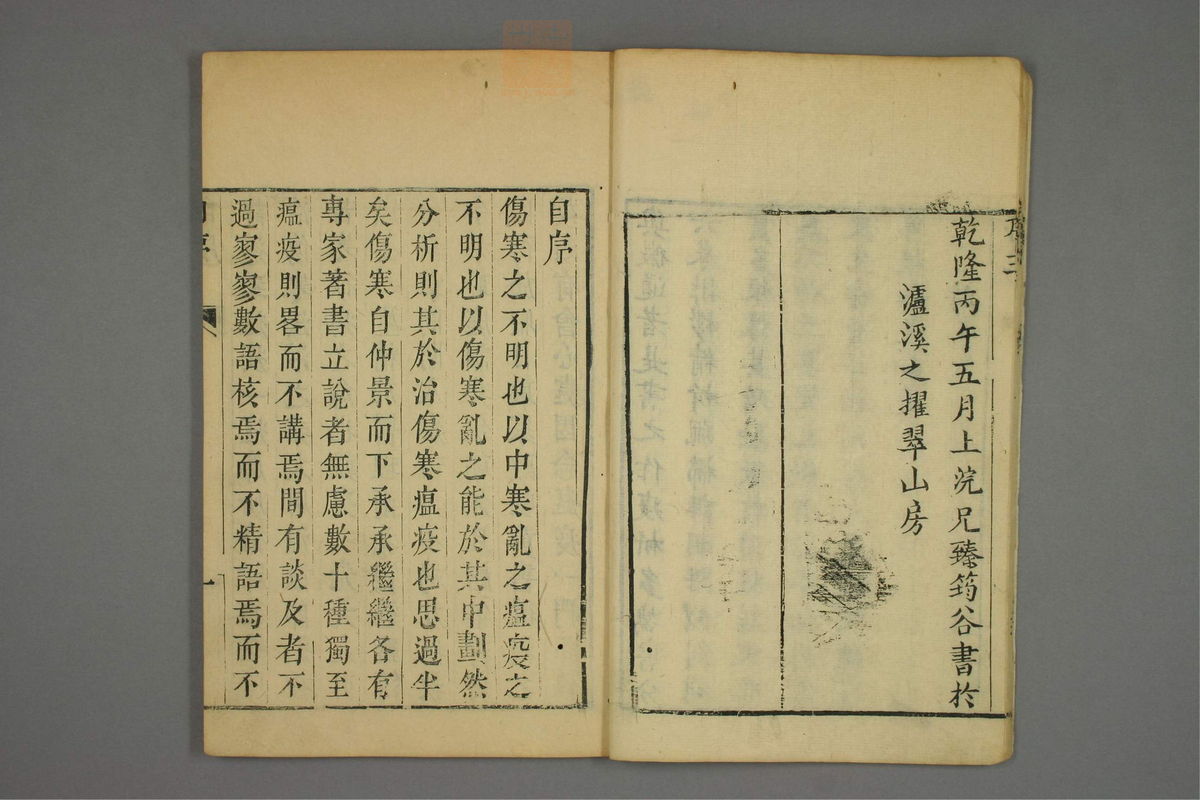 乾隆丙午五月上浣兄臻筠谷書於
瀘溪之擢翠山房
自序
傷寒之不明也以中寒亂之瘟疫之
不明也以傷寒亂之能於其中劃然
分析則其於治傷寒瘟疫也思過半
矣傷寒自仲景而下承承繼繼各有
專家著書立說者無慮數十種獨至
瘟疫則畧而不講焉間有談及者不
過寥寥數語核焉而不精語焉而不